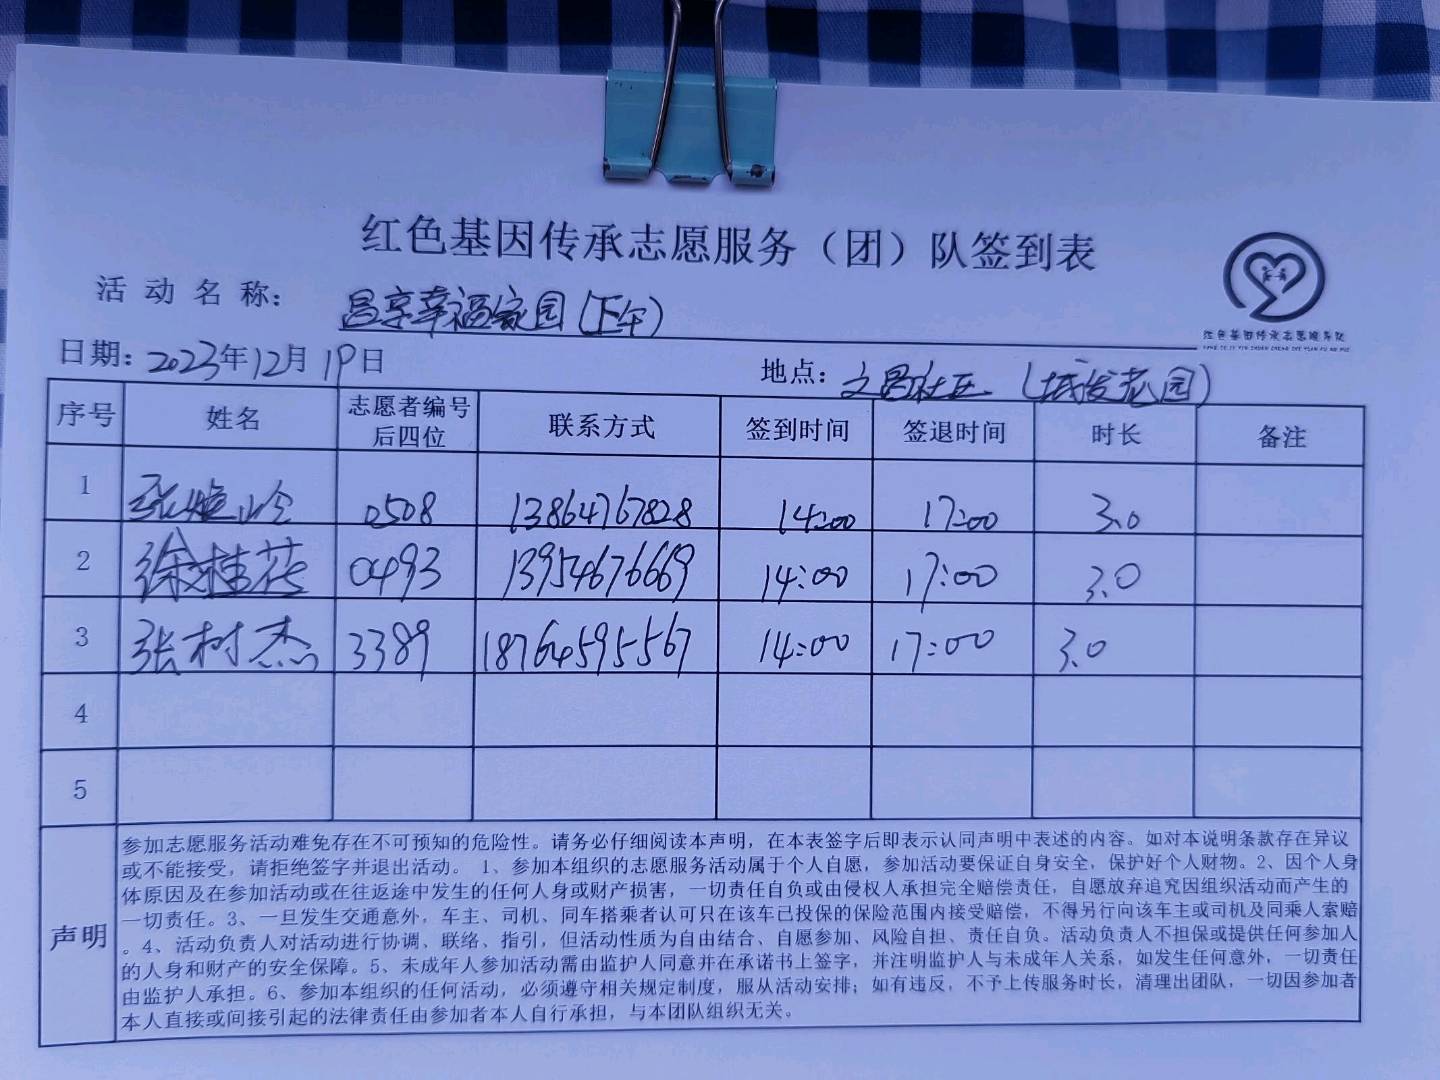 红色基因传承志愿服务（团）队签到表
活动名称：昌享幸福家园（下午）
红色基因传承志愿服务队
日期：2023年12月19日 地点：文昌社区（城发花园）
序号 姓名 志愿者编号后四位 联系方式 签到时间 签退时间 时长 备注
1 张 岭 0508 13864767828 14:00 17:00 3.0
2 徐桂花 0493 13954676669 14:00 17:00 3.0
3 张树杰 3389 18764595567 14:00 17:00 3.0
4
5
声明
参加志愿服务活动难免存在不可预知的危险性。请务必仔细阅读本声明，在本表签字后即表示认同声明中表述的内容。如对本说明条款存在异议
或不能接受，请拒绝签字并退出活动。 1、参加本组织的志愿服务活动属于个人自愿，参加活动要保证自身安全，保护好个人财物。2、因个人身
体原因及在参加活动或在往返途中发生的任何人身或财产损害，一切责任自负或由侵权人承担完全赔偿责任，自愿放弃追究因组织活动而产生的
一切责任。3、一旦发生交通意外，车主、司机、同车搭乘者认可只在该车已投保的保险范围内接受赔偿，不得另行向该车主或司机及同乘人索赔
。4、活动负责人对活动进行协调、联络、指引，但活动性质为自由结合、自愿参加、风险自担、责任自负。活动负责人不担保或提供任何参加人
的人身和财产的安全保障。5、未成年人参加活动需由监护人同意并在承诺书上签字，并注明监护人与未成年人关系，如发生任何意外，一切责任
由监护人承担。6、参加本组织的任何活动，必须遵守相关规定制度，服从活动安排；如有违反，不予上传服务时长，清理出团队，一切因参加者
本人直接或间接引起的法律责任由参加者本人自行承担，与本团队组织无关。